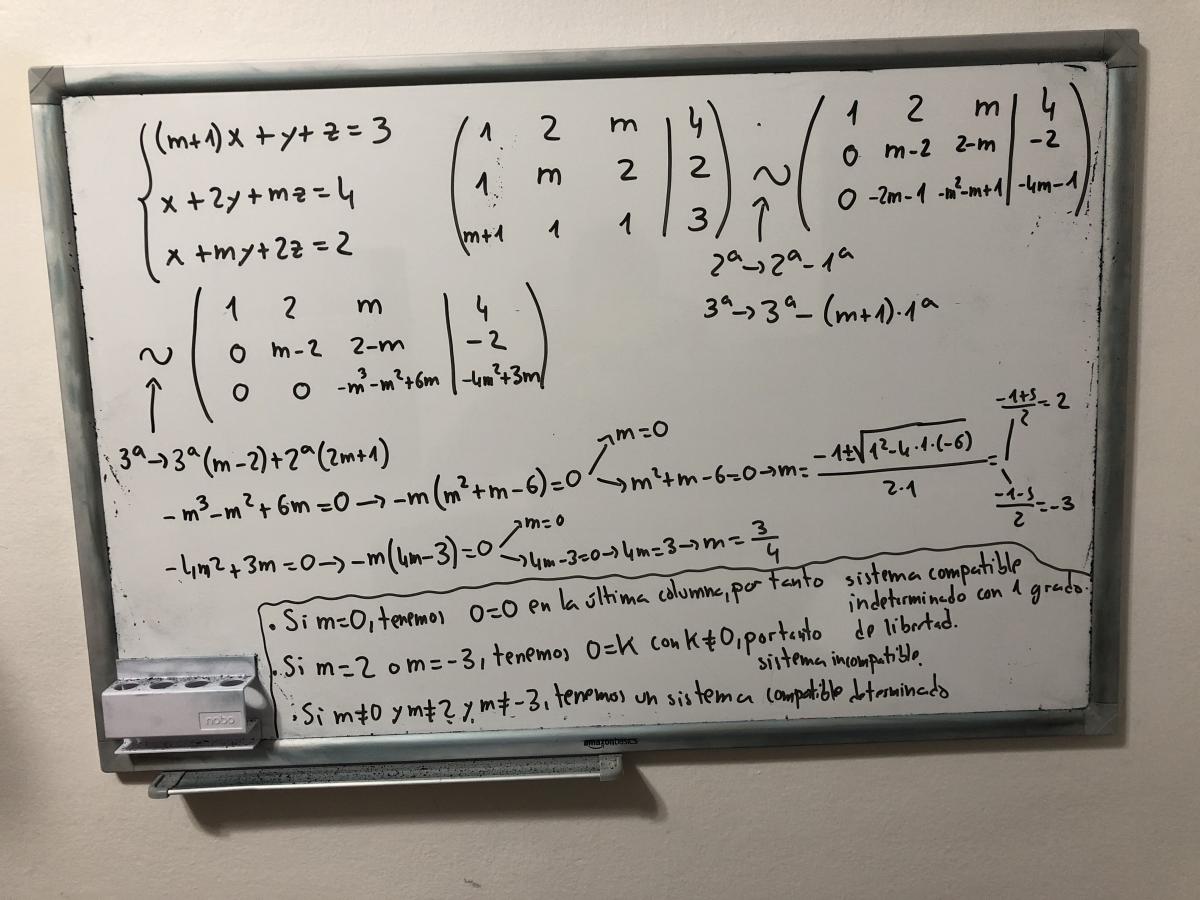 (m+1)x + y + z = 3
x + 2y + mz = 4
x + my + 2z = 2
1 2 m | 4
1 m 2 | 2
m+1 1 1 | 3
~
1 2 m | 4
0 m-2 2-m | -2
0 -2m-1 -m²-m+1 | -4m-1
↑
2ª→2ª-1ª
3ª→3ª-(m+1)·1ª
~
1 2 m | 4
0 m-2 2-m | -2
0 0 -m³-m²+6m | -4m²+3m
↑
3ª→3ª(m-2)+2ª(2m+1)
-m³-m²+6m=0 → -m(m²+m-6)=0
→m=0
→m²+m-6=0→m= (-1±√(1²-4·1·(-6)))/(2·1) =
(-1+5)/2=2
(-1-5)/2=-3
-4m²+3m=0→-m(4m-3)=0
→m=0
→4m-3=0→4m=3→m=3/4
· Si m=0, tenemos 0=0 en la última columna, por tanto sistema compatible
indeterminado con 1 grado
de libertad.
· Si m=2 o m=-3, tenemos 0=K con K≠0, por tanto
sistema incompatible.
· Si m≠0 y m≠2 y m≠-3, tenemos un sistema compatible determinado
nobo
amazonbasics